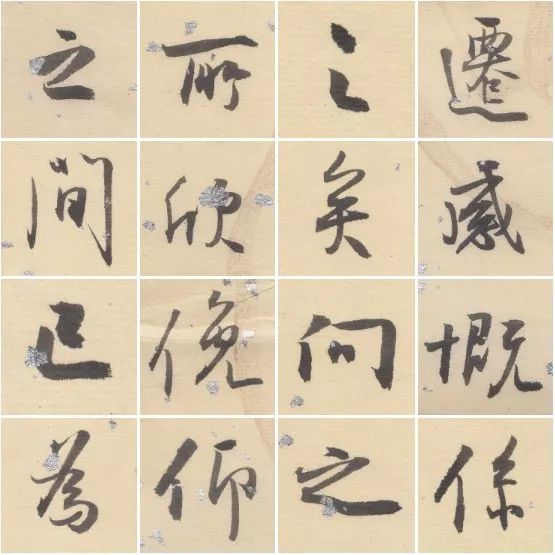 遷感慨係
之矣向之
所欣俛仰
之間已為